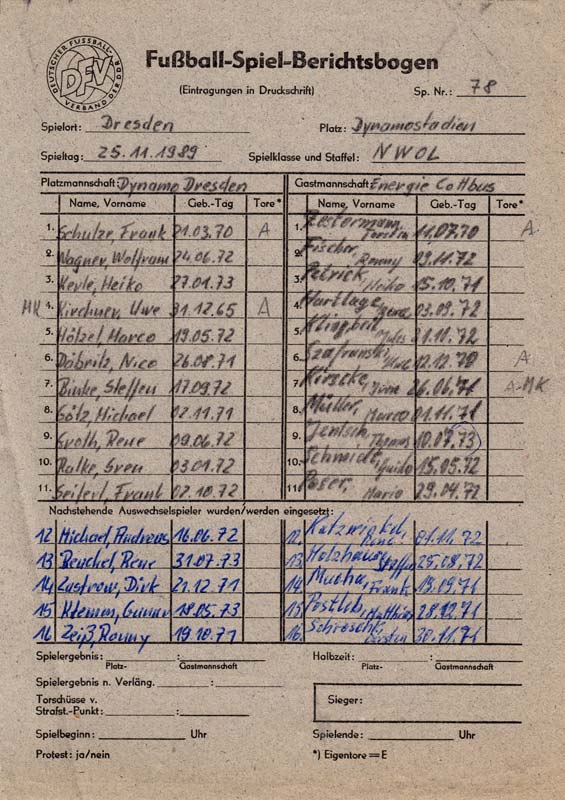 DEUTSCHER FUSSBALL-VERBAND DER DDR
DFV
Fußball-Spiel-Berichtsbogen
(Eintragungen in Druckschrift) Sp. Nr.: 78
Spielort: Dresden Platz: Dynamostadion
Spieltag: 25.11.1989 Spielklasse und Staffel: NWOL
Platzmannschaft: Dynamo Dresden Gastmannschaft: Energie Cottbus
Name, Vorname Geb.-Tag Tore* Name, Vorname Geb.-Tag Tore*
1. Schulze, Frank 21.03.70 A 1. Zestermann, Torstin 11.07.70 A
2. Wagner, Wolfram 24.06.72 2. Fischer, Ronny 09.11.72
3. Kerle, Heiko 27.01.73 3. Petrick, Heiko 15.10.71
MK 4. Kirchner, Uwe 31.12.65 A 4. Hartlage, 03.09.72
5. Hölzel, Marco 19.05.72 5. 21.10.72
6. Döbritz, Nico 26.08.71 6. Szafranski, 12.12.70 A
7. Binke, Steffen 17.09.72 7. 26.06.71 A-MK
8. Götz, Michael 02.11.71 8. Müller, Marco 01.11.71
9. Groth, Rene 09.06.72 9. Jentsch, Thomas 10.07.73
10. Ratke, Sven 03.01.72 10. Schmidt, Guido 15.05.72
11. Seifert, Frank 02.10.72 11. Poser, Mario 29.04.72
Nachstehende Auswechselspieler wurden/werden eingesetzt:
12 Michael, Andreas 16.06.72 12. Katzwinkel, Rene 01.11.72
13 Beuchel, Rene 31.07.73 13. Holzhauer, Steffen 25.08.72
14 Zastrow, Dirk 21.12.71 14. Mucha, Frank 13.09.71
15 Klemm, Gunnar 18.05.73 15. Matthias 28.12.71
16 Zeiß, Ronny 19.10.71 16. Carsten 30.11.71
Spielergebnis: : Halbzeit: :
Platz- Gastmannschaft Platz- Gastmannschaft
Spielergebnis n. Verläng. :
Torschüsse v.
Strafst.-Punkt: : Sieger:
Spielbeginn: Uhr Spielende: Uhr
Protest: ja/nein *) Eigentore = E